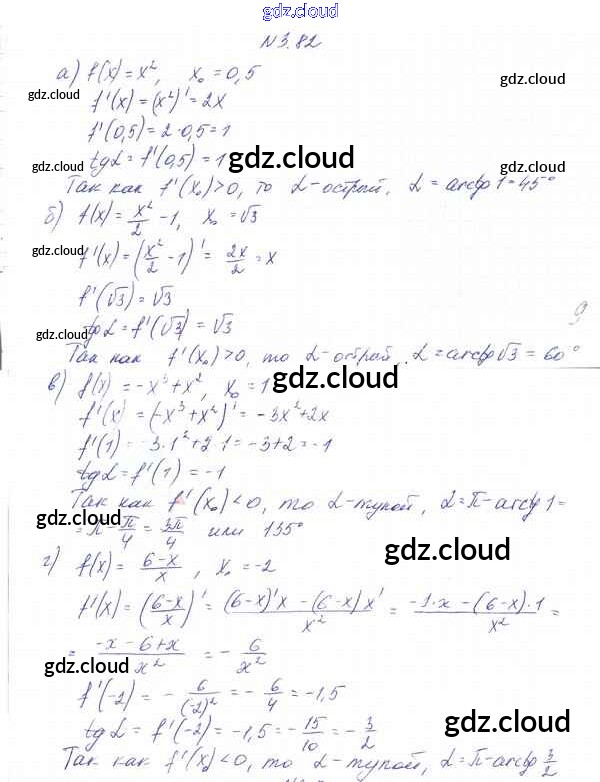 gdz.cloud
N3.82
а) f(x) = x², x₀ = 0,5
gdz.cloud
gdz.cloud
f'(x) = (x²)' = 2x
f'(0,5) = 2·0,5 = 1
gdz.cloud
tg α = f'(0,5) = 1
gdz.cloud
Так как f'(x₀) > 0, то α - острый, α = arctg 1 = 45°
б) f(x) = x²/2 - 1, x₀ = √3
gdz.cloud
gdz.cloud
f'(x) = (x²/2 - 1)' = 2x/2 = x
gdz.cloud
f'(√3) = √3
9
gdz.cloud
tg α = f'(√3) = √3
Так как f'(x₀) > 0, то α - острый, α = arctg √3 = 60°
в) f(x) = -x³ + x², x₀ = 1
gdz.cloud
f'(x) = (-x³ + x²)' = -3x² + 2x
gdz.cloud
f'(1) = -3·1² + 2·1 = -3 + 2 = -1
tg α = f'(1) = -1
gdz.cloud
Так как f'(x₀) < 0, то α - тупой, α = π - arctg 1 =
gdz.cloud
= π - π/4 = 3π/4 или 135°
г) f(x) = (6-x)/x, x₀ = -2
gdz.cloud
f'(x) = ((6-x)/x)' = ((6-x)'x - (6-x)x')/x² = (-1·x - (6-x)·1)/x² =
= (-x - 6 + x)/x² = -6/x²
gdz.cloud
gdz.cloud
f'(-2) = -6/(-2)² = -6/4 = -1,5
tg α = f'(-2) = -1,5 = -15/10 = -3/2
gdz.cloud
gdz.cloud
Так как f'(x₀) < 0, то α - тупой, α = π - arctg 3/2